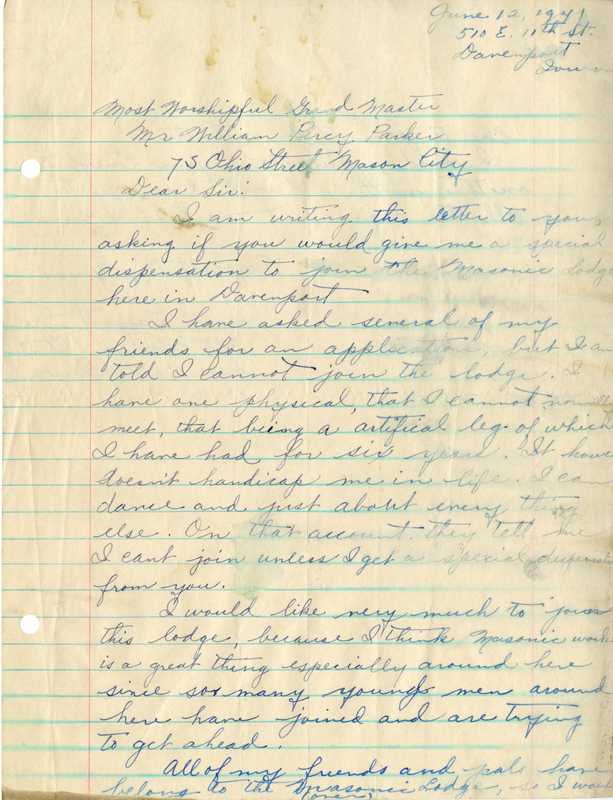 June 12, 1941
510 E. 11th St.
Davenport
Iowa
Most Worshipful Grand Master
Mr William Percy Parker
7 S Ohio Street Mason City
Dear Sir:
I am writing this letter to you,
asking if you would give me a special
dispensation to join the Masonic Lodge
here in Davenport
I have asked several of my
friends for an application, but I am
told I cannot join the lodge. I
have one physical, that I cannot normally
meet, that being a artifical leg of which
I have had for six years. It
doesn't handicap me in life. I can
dance and just about every thing
else. On that account they tell me
I cant join unless I get a special dispensation
from you.
I would like very much to join
this lodge, because I think Masonic work
is a great thing especially around here
since so many young men around
here have joined and are trying
to get ahead.
All of my friends and pals have
belong to the Masonic Lodge, so I would
(over)